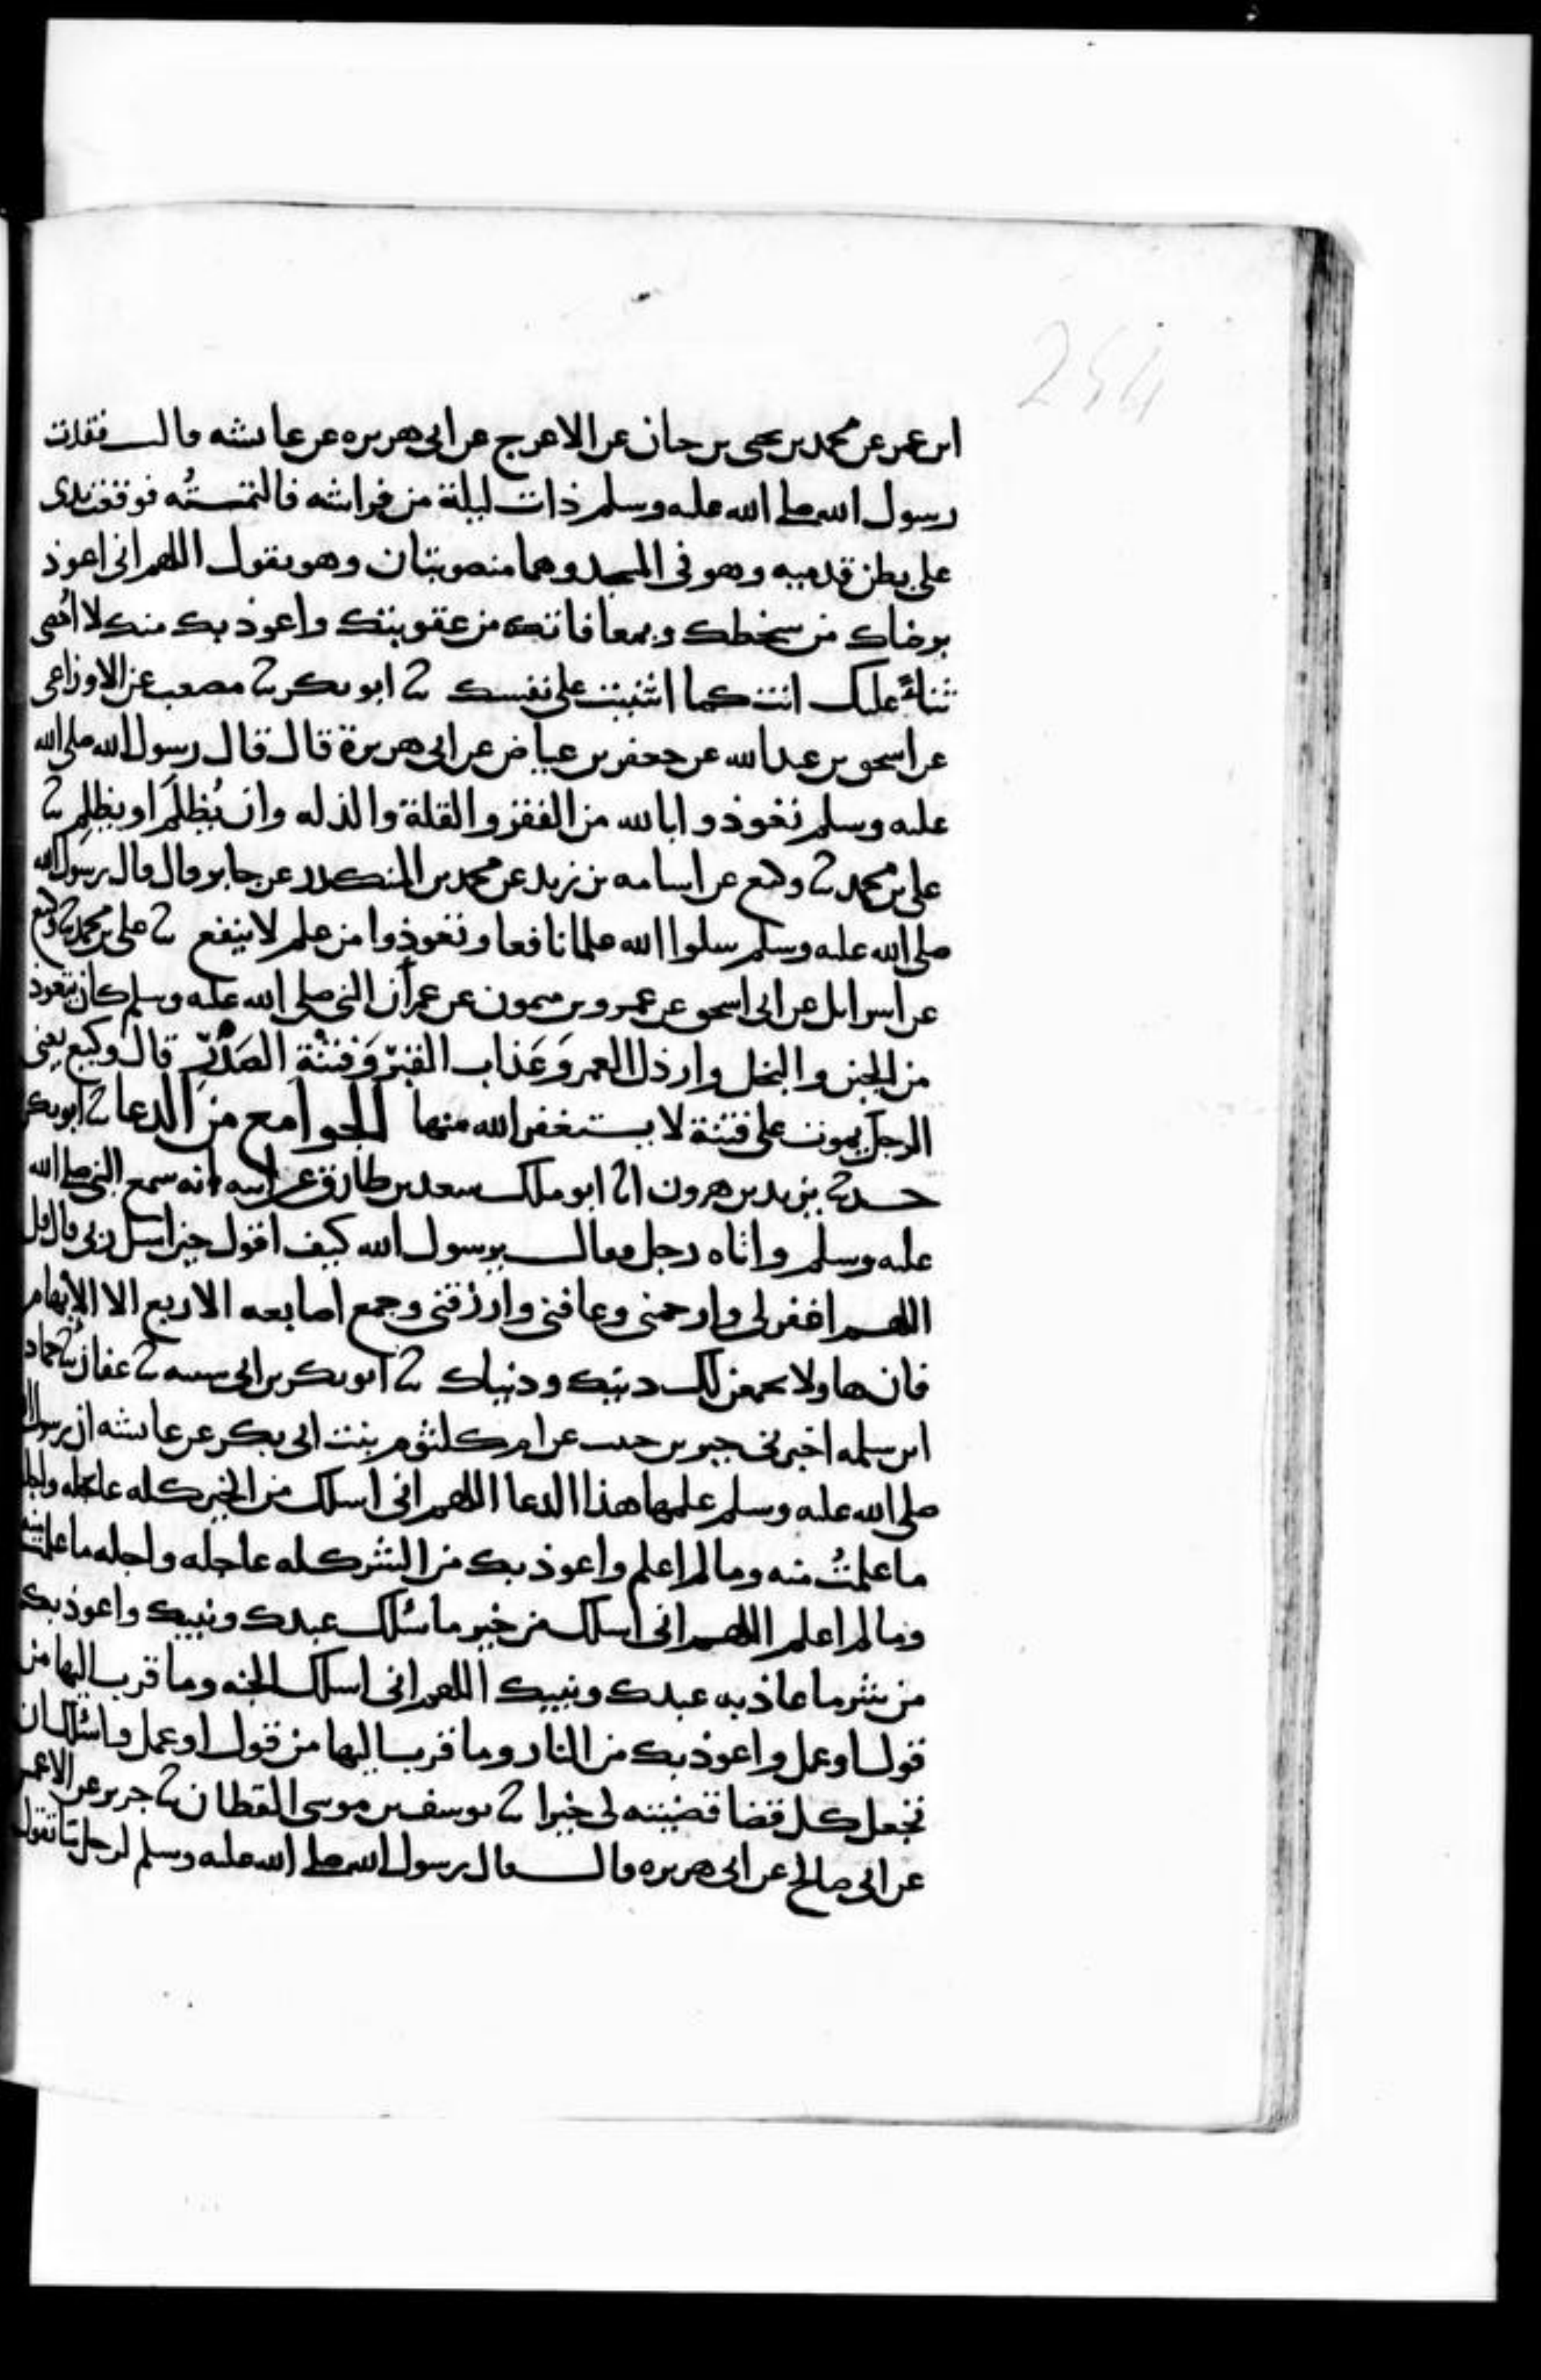 254
ابن عمر عن محمد بن يحيى بن حبان عن الاعرج عن ابى هريره عن عائشه قالت فقدت
رسول الله صلى الله عليه وسلم ذات ليلة من فراشه فالتمسته فوقعت يدى
على بطن قدميه وهو فى المسجد وهما منصوبتان وهو يقول اللهم انى اعوذ
برضاك من سخطك وبمعافاتك من عقوبتك واعوذ بك منك لا اُحصى
ثناءً عليك انت كما اثنيت على نفسك ثنا ابو بكر ثنا مصعب عن الاوزاعى
عن اسحق بن عبد الله عن جعفر بن عياض عن ابى هريرة قال قال رسول الله صلى الله
عليه وسلم تعوذوا بالله من الفقر والقلة والذله وان تُظلَم او تظلِم ثنا
على بن محمد ثنا وكيع عن اسامه بن زيد عن محمد بن المنكدر عن جابر قال قال رسول الله
صلى الله عليه وسلم سلوا الله علما نافعا وتعوذوا من علم لا ينفع ثنا على بن محمد ثنا وكيع
عن اسرائيل عن ابى اسحق عن عمرو بن ميمون عن عمر أن النبى صلى الله عليه وسلم كان يتعوذ
من الجبن والبخل وارذل العمر وَعَذاب القبرِ وَفتنْة الصَدْرِ قال وكيع يعنى
الرجل يموت على فتنة لا يستغفر الله منها الجوامع من الدعا ثنا ابو بكر
حدثنا يزيد بن هرون انا ابو ملك سعد بن طارق عن ابيه انه سمع النبى صلى الله
عليه وسلم واتاه رجل فقال يرسول الله كيف اقول حين اسل ربى قال قل
اللهم اغفر لى وارحمنى وعافنى وارزقنى وجمع اصابعه الاربع الا الابهام
فان هاولا يجمعن لك دينك ودنياك ثنا ابو بكر بن ابى شيبه ثنا عفان ثنا حماد
ابن سلمه اخبرنى جبر بن حبيب عن ام كلثوم بنت ابى بكر عن عائشه ان رسول الله
صلى الله عليه وسلم علمها هذا الدعا اللهم انى اسلك من الخير كله عاجله واجله
ما علمتُ منه وما لم اعلم واعوذ بك من الشر كله عاجله واجله ما علمت منه
وما لم اعلم اللهم انى اسلك من خير ما سئلك عبدك ونبيك واعوذ بك
من شر ما عاذ به عبدك ونبيك اللهم انى اسلك الجنه وما قرب اليها من
قول او عمل واعوذ بك من النار وما قرب اليها من قول او عمل واسئلك ان
تجعل كل قضا قضيته لى خيرا ثنا يوسف بن موسى القطان ثنا جرير عن الاعمش
عن ابى صالح عن ابى هريره قال قال رسول الله صلى الله عليه وسلم لرجل ما تقول